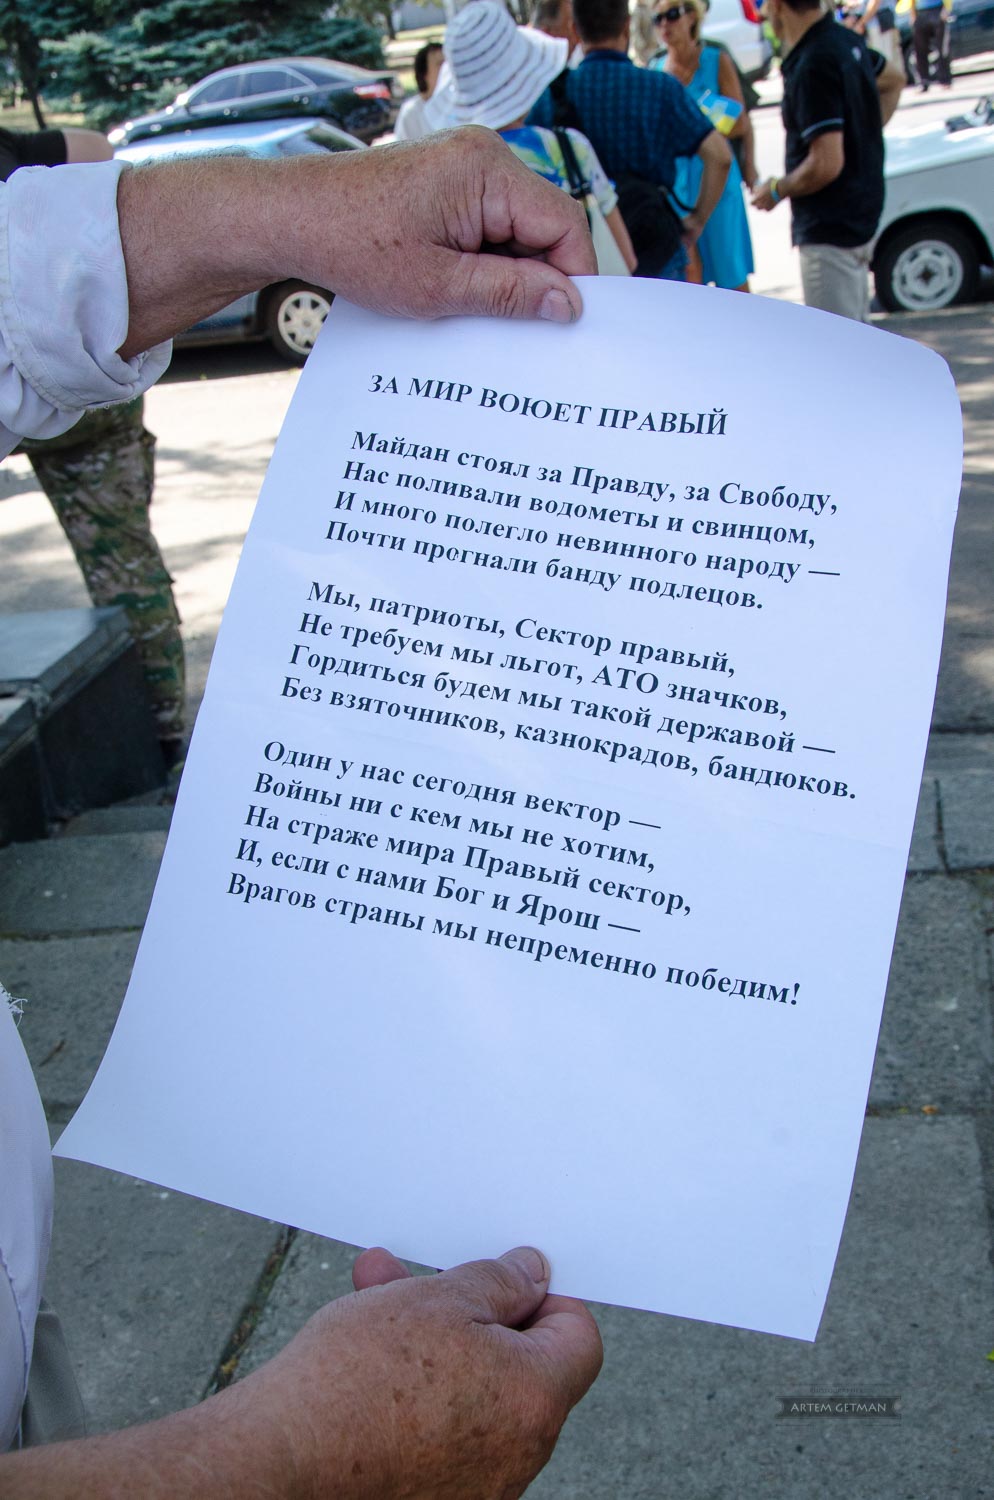 ЗА МИР ВОЮЕТ ПРАВЫЙ
Майдан стоял за Правду, за Свободу,
Нас поливали водометы и свинцом,
И много полегло невинного народу —
Почти прогнали банду подлецов.
Мы, патриоты, Сектор правый,
Не требуем мы льгот, АТО значков,
Гордиться будем мы такой державой —
Без взяточников, казнокрадов, бандюков.
Один у нас сегодня вектор —
Войны ни с кем мы не хотим,
На страже мира Правый сектор,
И, если с нами Бог и Ярош —
Врагов страны мы непременно победим!
ARTEM GETMAN